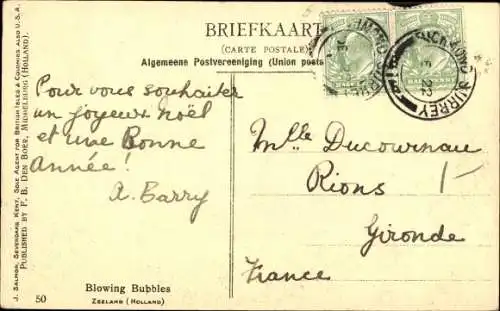 BRIEFKAART
(CARTE POSTALE)
Algemeene Postvereeniging (Union posta
Pour vous souhaiter
un joyeux noël
et une Bonne
année!
A. Barry
Mlle Ducournau
Rions
Gironde
France
Blowing Bubbles
ZEELAND (HOLLAND)
50
J. SALMON, SEVENOAKS, KENT, SOLE AGENT FOR BRITISH ISLES & COLONIES ALSO U.S.A.
PUBLISHED BY F. B. DEN BOER, MIDDELBURG (HOLLAND).
RICHMOND
SURREY